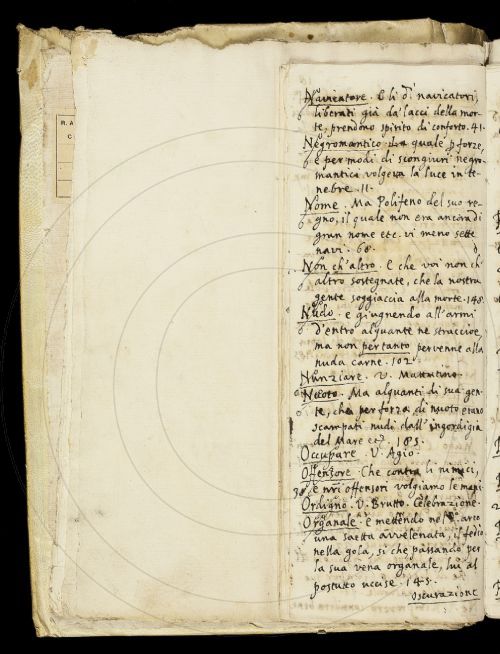 Navicatore. E li dì navicatori,
liberati già da' lacci della mor-
te, prendono spirito di conforto. 41.
Negromantico. La quale p forze,
e per modi di scongiuri negro-
mantici volgeva la luce in te-
nebre. 11.
Nome. Ma Polifeno del suo re-
gno, il quale non era ancora di
gran nome etc. vi meno sette
navi. 68.
Non ch'altro. E che voi non ch'
altro sostegnate, che la nostra
gente soggiaccia alla morte. 148.
Nudo. e giugnendo all'armi
d'entro alquante ne straccioe,
ma non pertanto pervenne alla
nuda carne. 102.
Nunziare. V. Mattutino.
Nuoto. Ma alquanti di sua gen-
te, che per forza di nuoto erano
scampati nudi dall'ingordigia
del Mare etc. 185.
Occupare. V. Agio.
Offensore. Che contra li nimici,
e nri offensori volgiamo le mani
30
Ordigno. V. Brutto. Celebrazione.
Organale. e mettendo nell' arco
una saetta avvelenata, il fedìo
nella gola, sì che passando per
la sua vena organale, lui al
postutto uccise. 145.
Oscurazione
R. A
C